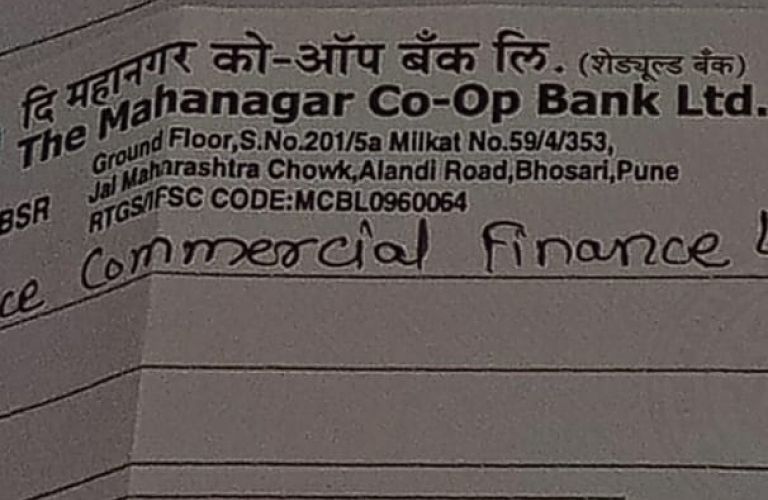 दि महानगर को-ऑप बँक लि. (शेड्यूल्ड बँक)
The Mahanagar Co-Op Bank Ltd.
Ground Floor,S.No.201/5a Milkat No.59/4/353,
Jai Maharashtra Chowk,Alandi Road,Bhosari,Pune
BSR RTGS/IFSC CODE:MCBL0960064
ce Commercial Finance L